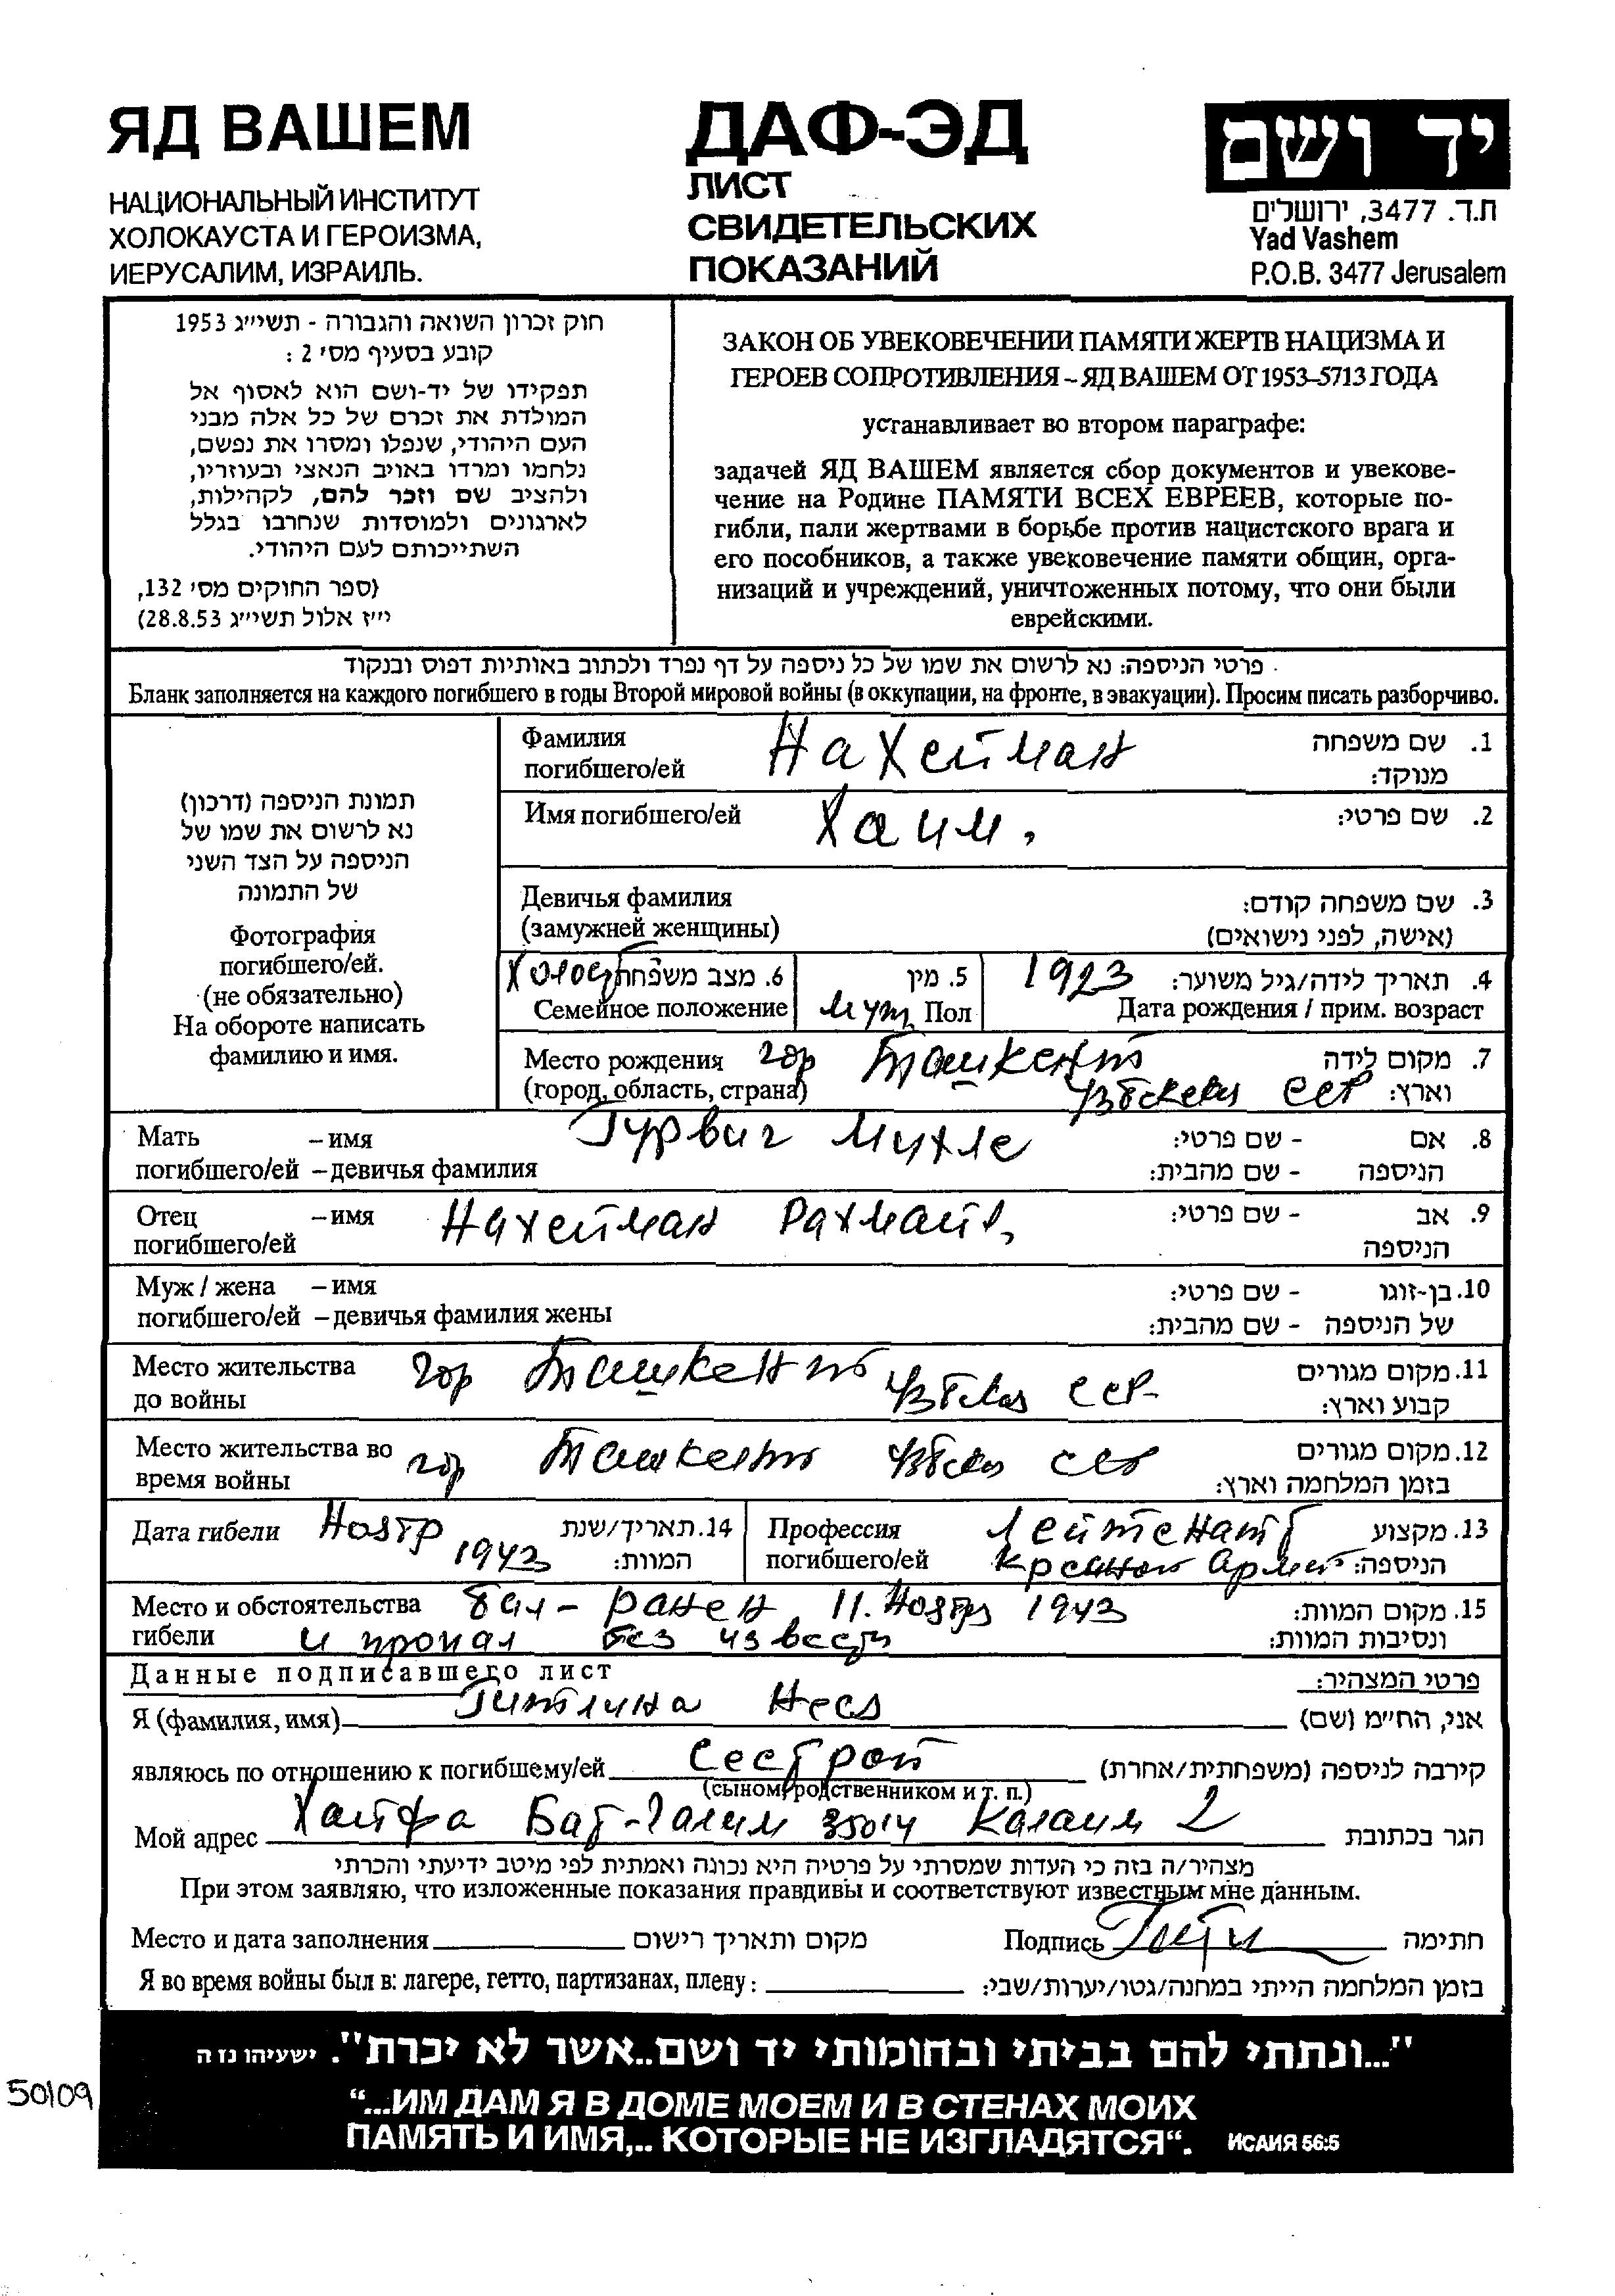 ЯД ВАШЕМ
НАЦИОНАЛЬНЫЙ ИНСТИТУТ
ХОЛОКАУСТА И ГЕРОИЗМА,
ИЕРУСАЛИМ, ИЗРАИЛЬ.
ДАФ-ЭД
ЛИСТ
СВИДЕТЕЛЬСКИХ
ПОКАЗАНИЙ
יד ושם
ת.ד. 3477, ירושלים
Yad Vashem
P.O.B. 3477 Jerusalem
חוק זכרון השואה והגבורה - תשי״ג 1953
קובע בסעיף מס׳ 2 :
תפקידו של יד-ושם הוא לאסוף אל
המולדת את זכרם של כל אלה מבני
העם היהודי, שנפלו ומסרו את נפשם,
נלחמו ומרדו באויב הנאצי ובעוזריו,
ולהציב שם וזכר להם, לקהילות,
לארגונים ולמוסדות שנחרבו בגלל
השתייכותם לעם היהודי.
(ספר החוקים מס׳ 132,
י״ז אלול תשי״ג 28.8.53)
ЗАКОН ОБ УВЕКОВЕЧЕНИИ ПАМЯТИ ЖЕРТВ НАЦИЗМА И
ГЕРОЕВ СОПРОТИВЛЕНИЯ – ЯД ВАШЕМ ОТ 1953–5713 ГОДА
устанавливает во втором параграфе:
задачей ЯД ВАШЕМ является сбор документов и увекове-
чение на Родине ПАМЯТИ ВСЕХ ЕВРЕЕВ, которые по-
гибли, пали жертвами в борьбе против нацистского врага и
его пособников, а также увековечение памяти общин, орга-
низаций и учреждений, уничтоженных потому, что они были
еврейскими.
פרטי הניספה: נא לרשום את שמו של כל ניספה על דף נפרד ולכתוב באותיות דפוס ובנקוד
Бланк заполняется на каждого погибшего в годы Второй мировой войны (в оккупации, на фронте, в эвакуации). Просим писать разборчиво.
תמונת הניספה (דרכון)
נא לרשום את שמו של
הניספה על הצד השני
של התמונה
Фотография
погибшего/ей.
(не обязательно)
На обороте написать
фамилию и имя.
Фамилия Нахейман 1. שם משפחה
погибшего/ей מנוקד:
Имя погибшего/ей Хаим, 2. שם פרטי:
Девичья фамилия 3. שם משפחה קודם:
(замужней женщины) (אישה, לפני נישואים)
Холост 6. מצב משפחתי 5. מין 1923 4. תאריך לידה/גיל משוער:
Семейное положение муж Пол Дата рождения / прим. возраст
Место рождения гор Ташкент 7. מקום לידה
(город, область, страна) ССР וארץ:
Мать – имя Гурвич Михле 8. אם - שם פרטי:
погибшего/ей – девичья фамилия הניספה - שם מהבית:
Отец – имя Нахейман 9. אב - שם פרטי:
погибшего/ей הניספה
Муж / жена – имя 10. בן-זוגו - שם פרטי:
погибшего/ей – девичья фамилия жены של הניספה - שם מהבית:
Место жительства гор Ташкент ССР 11. מקום מגורים
до войны קבוע וארץ:
Место жительства во гор Ташкент ССР 12. מקום מגורים
время войны בזמן המלחמה וארץ:
Дата гибели Ноябр 14. תאריך/שנת Профессия Лейтенант 13. מקצוע
1943 המוות: погибшего/ей הניספה:
Место и обстоятельства был - ранен 11. Ноября 1943 15. מקום המוות:
гибели и пропал без вести ונסיבות המוות:
Данные подписавшего лист פרטי המצהיר:
Я (фамилия, имя) Гитлина Неся אני, הח״מ (שם)
являюсь по отношению к погибшему/ей Сестрой קירבה לניספה (משפחתית/אחרת)
(сыном, родственником и т. п.)
Мой адрес Хайфа Бат-Галим 35014 Калаим 2 הגר בכתובת
מצהיר/ה בזה כי העדות שמסרתי על פרטיה היא נכונה ואמתית לפי מיטב ידיעתי והכרתי
При этом заявляю, что изложенные показания правдивы и соответствуют известным мне данным.
Место и дата заполнения מקום ותאריך רישום Подпись חתימה
Я во время войны был в: лагере, гетто, партизанах, плену: בזמן המלחמה הייתי במחנה/גטו/יערות/שבי:
"...ונתתי להם בביתי ובחומותי יד ושם..אשר לא יכרת". ישעיהו נז ה
50109
"...ИМ ДАМ Я В ДОМЕ МОЕМ И В СТЕНАХ МОИХ
ПАМЯТЬ И ИМЯ,.. КОТОРЫЕ НЕ ИЗГЛАДЯТСЯ". ИСАИЯ 56:5